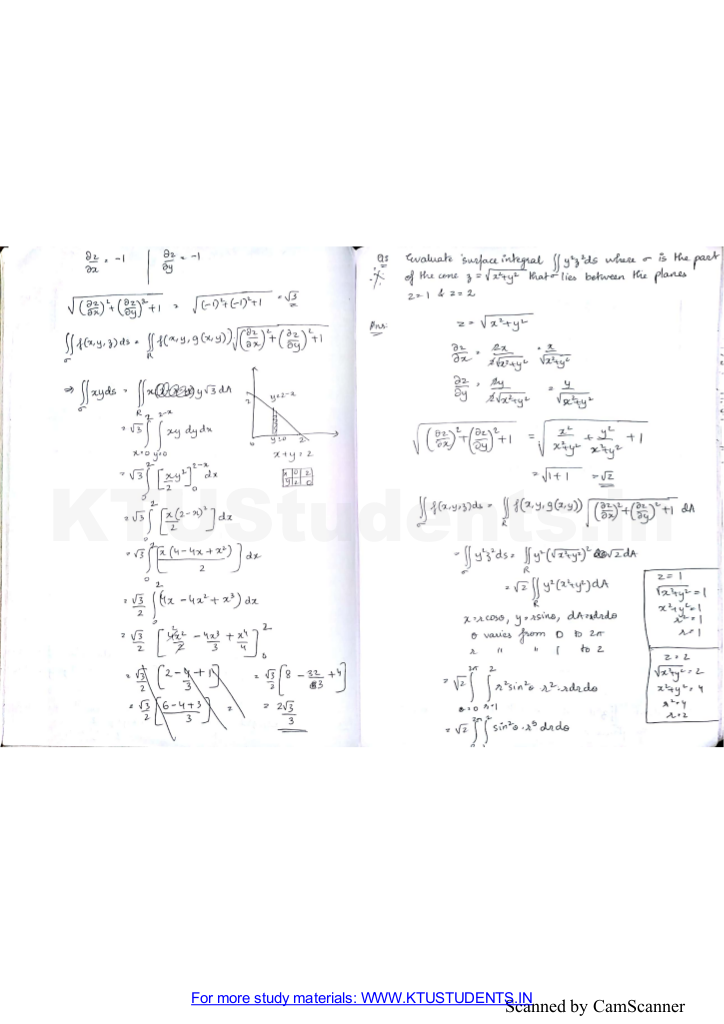 ∂z/∂x = -1 | ∂z/∂y = -1
√((∂z/∂x)² + (∂z/∂y)² + 1) = √((-1)² + (-1)² + 1) = √3
∬σ f(x,y,z) ds = ∬R f(x,y,g(x,y)) √((∂z/∂x)² + (∂z/∂y)² + 1)
⇒ ∬σ xy ds = ∬R x y √3 dA
= √3 ∫x=0^2 ∫y=0^2-x xy dy dx
= √3 ∫0^2 [xy²/2]0^2-x dx
= √3 ∫0^2 [x(2-x)²/2] dx
= √3 ∫0^2 [x(4-4x+x²)/2] dx
= √3/2 ∫0^2 (4x - 4x² + x³) dx
= √3/2 [4x²/2 - 4x³/3 + x⁴/4]0^2
= √3/2 [2 - 4/3 + 1]
= √3/2 [6-4+3/3] =
= √3/2 [8 - 32/3 + 4]
= 2√3/3
2
y=2-x
y=0
2
x+y=2
x 0 2
y 2 0
Qs Evaluate surface integral ∬ y²z² ds where σ is the part
of the cone z = √x²+y² that lies between the planes
z=1 & z=2
Ans: z = √x²+y²
∂z/∂x = 2x/2√x²+y² = x/√x²+y²
∂z/∂y = 2y/2√x²+y² = y/√x²+y²
√((∂z/∂x)² + (∂z/∂y)² + 1) = √(x²/x²+y² + y²/x²+y² + 1)
= √1+1 = √2
∬σ f(x,y,z) ds = ∬R f(x,y,g(x,y)) √((∂z/∂x)² + (∂z/∂y)² + 1) dA
= ∬σ y²z² ds = ∬R y² (√x²+y²)² √2 dA
= √2 ∬R y²(x²+y²) dA
x=rcosθ, y=rsinθ, dA=rdrdθ
θ varies from 0 to 2π
r " " 1 to 2
= √2 ∫θ=0^2π ∫r=1^2 r²sin²θ r² · r dr dθ
= √2 ∫^2π ∫^2 sin²θ · r⁵ dr dθ
z=1
√x²+y² = 1
x²+y² = 1
r² = 1
r=1
z=2
√x²+y² = 2
x²+y² = 4
r²=4
r=2
KTUStudents.in
For more study materials: WWW.KTUSTUDENTS.IN
Scanned by CamScanner